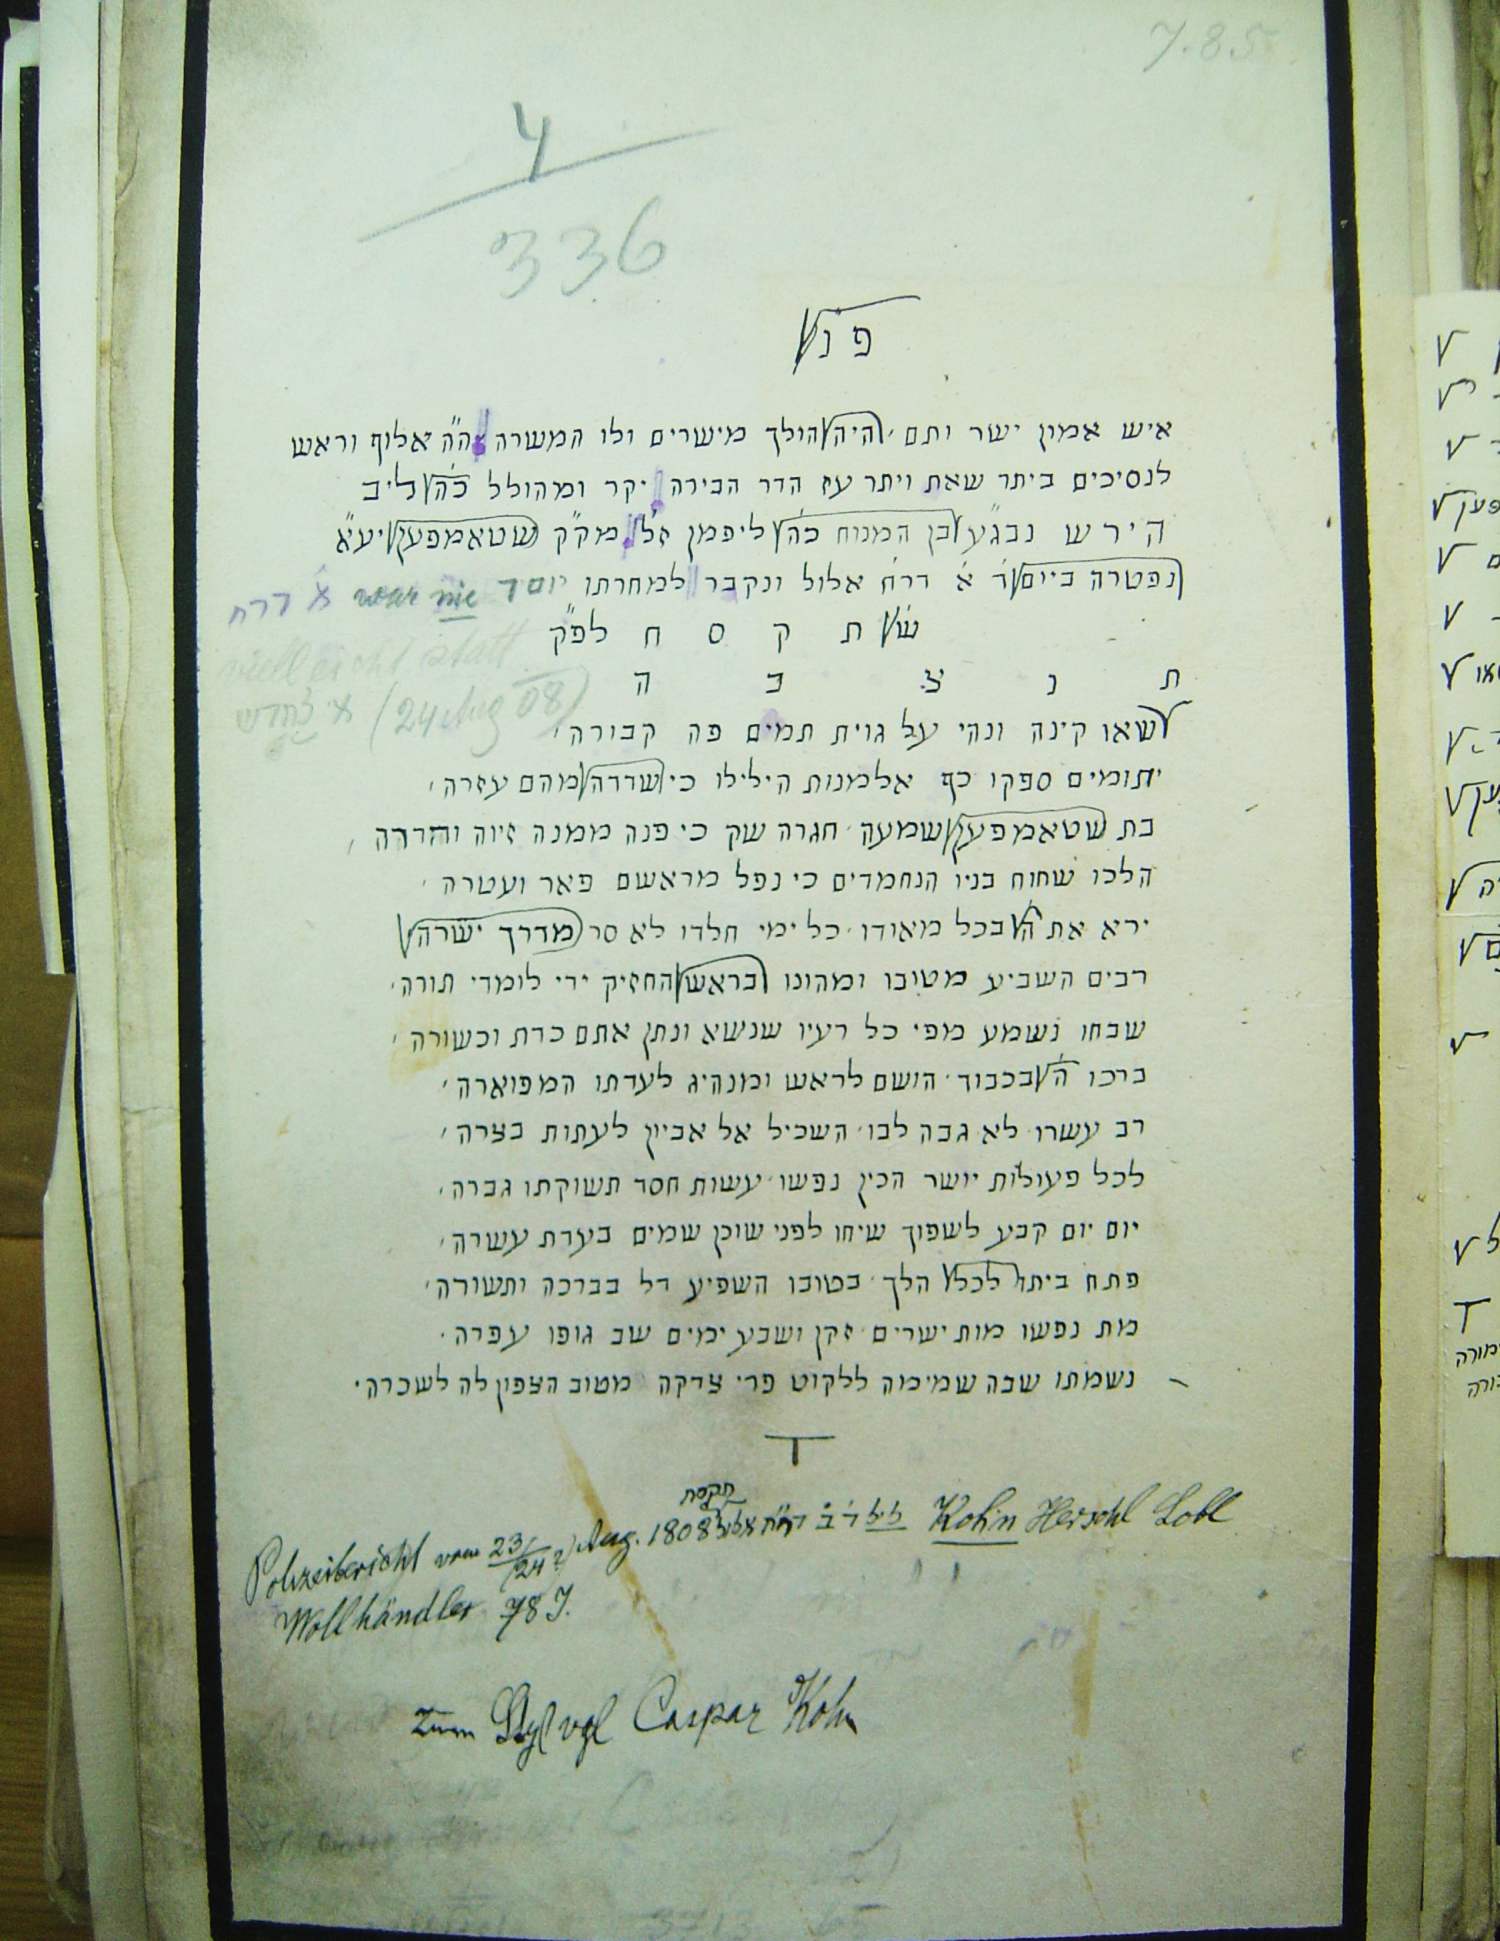 7.8.5
4
336
פ נ
איש אמון ישר ותם ׳ היה הולך מישרים ולו המשרה ה״ה אלוף וראש
לנסיכים ביתר שאת ויתר עז הדר הבירה יקר ומהולל כ״ה ליב
הירש נבג״ע בן המנוח כ״ה ליפמן ז״ל מק״ק שטאמפען יע״א
נפטרה ביום א׳ דר״ח אלול ונקבר למחרתו יום ד war nie א׳ דר״ח
ש׳ ת ק ס ח לפ״ק
vielleicht statt
ת נ צ ב ה
(24 Aug 08)
שאו קינה ונהי על גוית תמים פה קבורה ׳
יתומים ספקו כף אלמנות הילילו כי שדדה מהם עזרה ׳
בת שטאמפען שמעה ׳ חגרה שק כי פנה ממנה זיוה והדרה ׳
הלכו שחוח בניו הנחמדים כי נפל מראשם פאר ועטרה ׳
ירא את ה׳ בכל מאודו ׳ כל ימי חלדו לא סר מדרך ישרה
רבים השביע מטובו ומהונו בראש החזיק ידי לומדי תורה ׳
שבחו נשמע מפי כל רעיו שנשא ונתן אתם כדת וכשורה ׳
ברכו ה׳ בכבוד ׳ הושם לראש ומנהיג לעדתו המפוארה ׳
רב עשרו לא גבה לבו ׳ השכיל אל אביון לעתות בצרה ׳
לכל פעולות יושר הכין נפשו ׳ עשות חסד תשוקתו גברה ׳
יום יום קבע לשפוך שיחו לפני שוכן שמים בעדת עשרה ׳
פתח ביתו לכל הלך ׳ בטובו השפיע דל בברכה ותשורה ׳
מת נפשו מות ישרים ׳ זקן ושבע ימים שב גופו עפרה ׳
נשמתו שבה שמימה ללקוט פרי צדקה מטוב הצפון לה לשכרה ׳
תקסח
Kohn Herschl Lobl ליל ד׳ ב׳ דר״ח אלול
Polizeibericht vom 23/(24?) Aug. 1808
Wollhändler 78 J.
zum Styl vgl Caspar Kohn